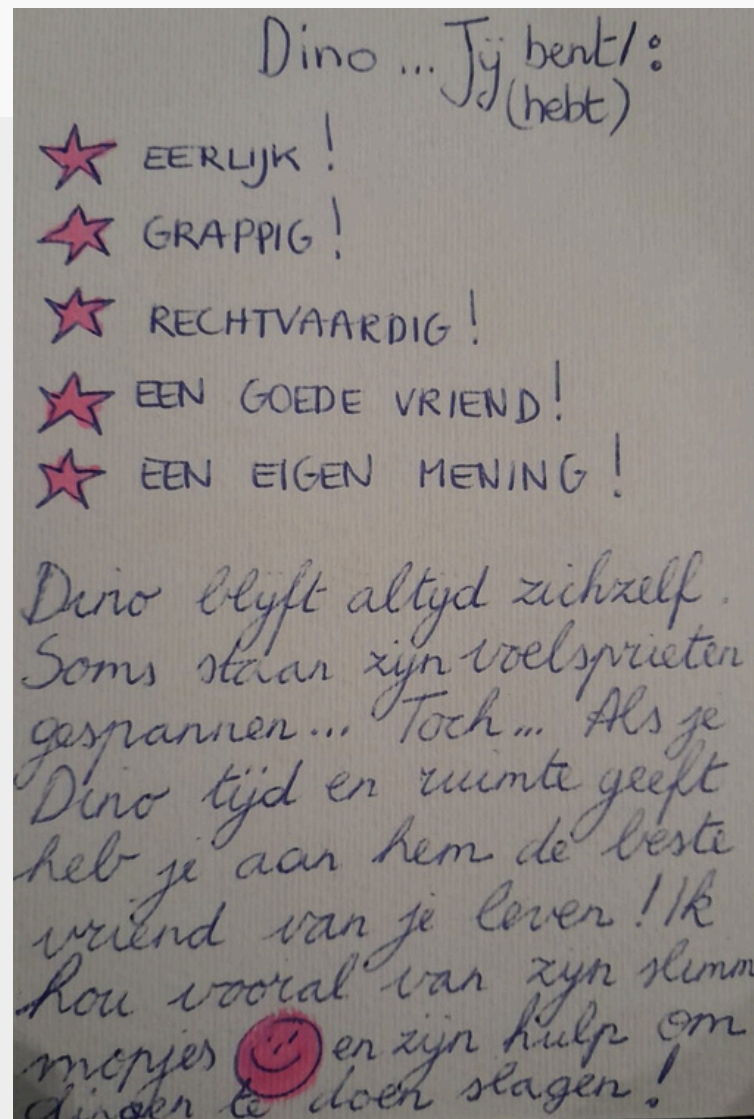 Dino ... Jij bent/:
(hebt)
EERLIJK!
GRAPPIG!
RECHTVAARDIG!
EEN GOEDE VRIEND!
EEN EIGEN MENING!
Dino blijft altijd zichzelf.
Soms staan zijn voelsprieten
gespannen... Toch... Als je
Dino tijd en ruimte geeft
heb je aan hem de beste
vriend van je leven! Ik
hou vooral van zijn slimm
mopjes en zijn hulp om
dingen te doen slagen!